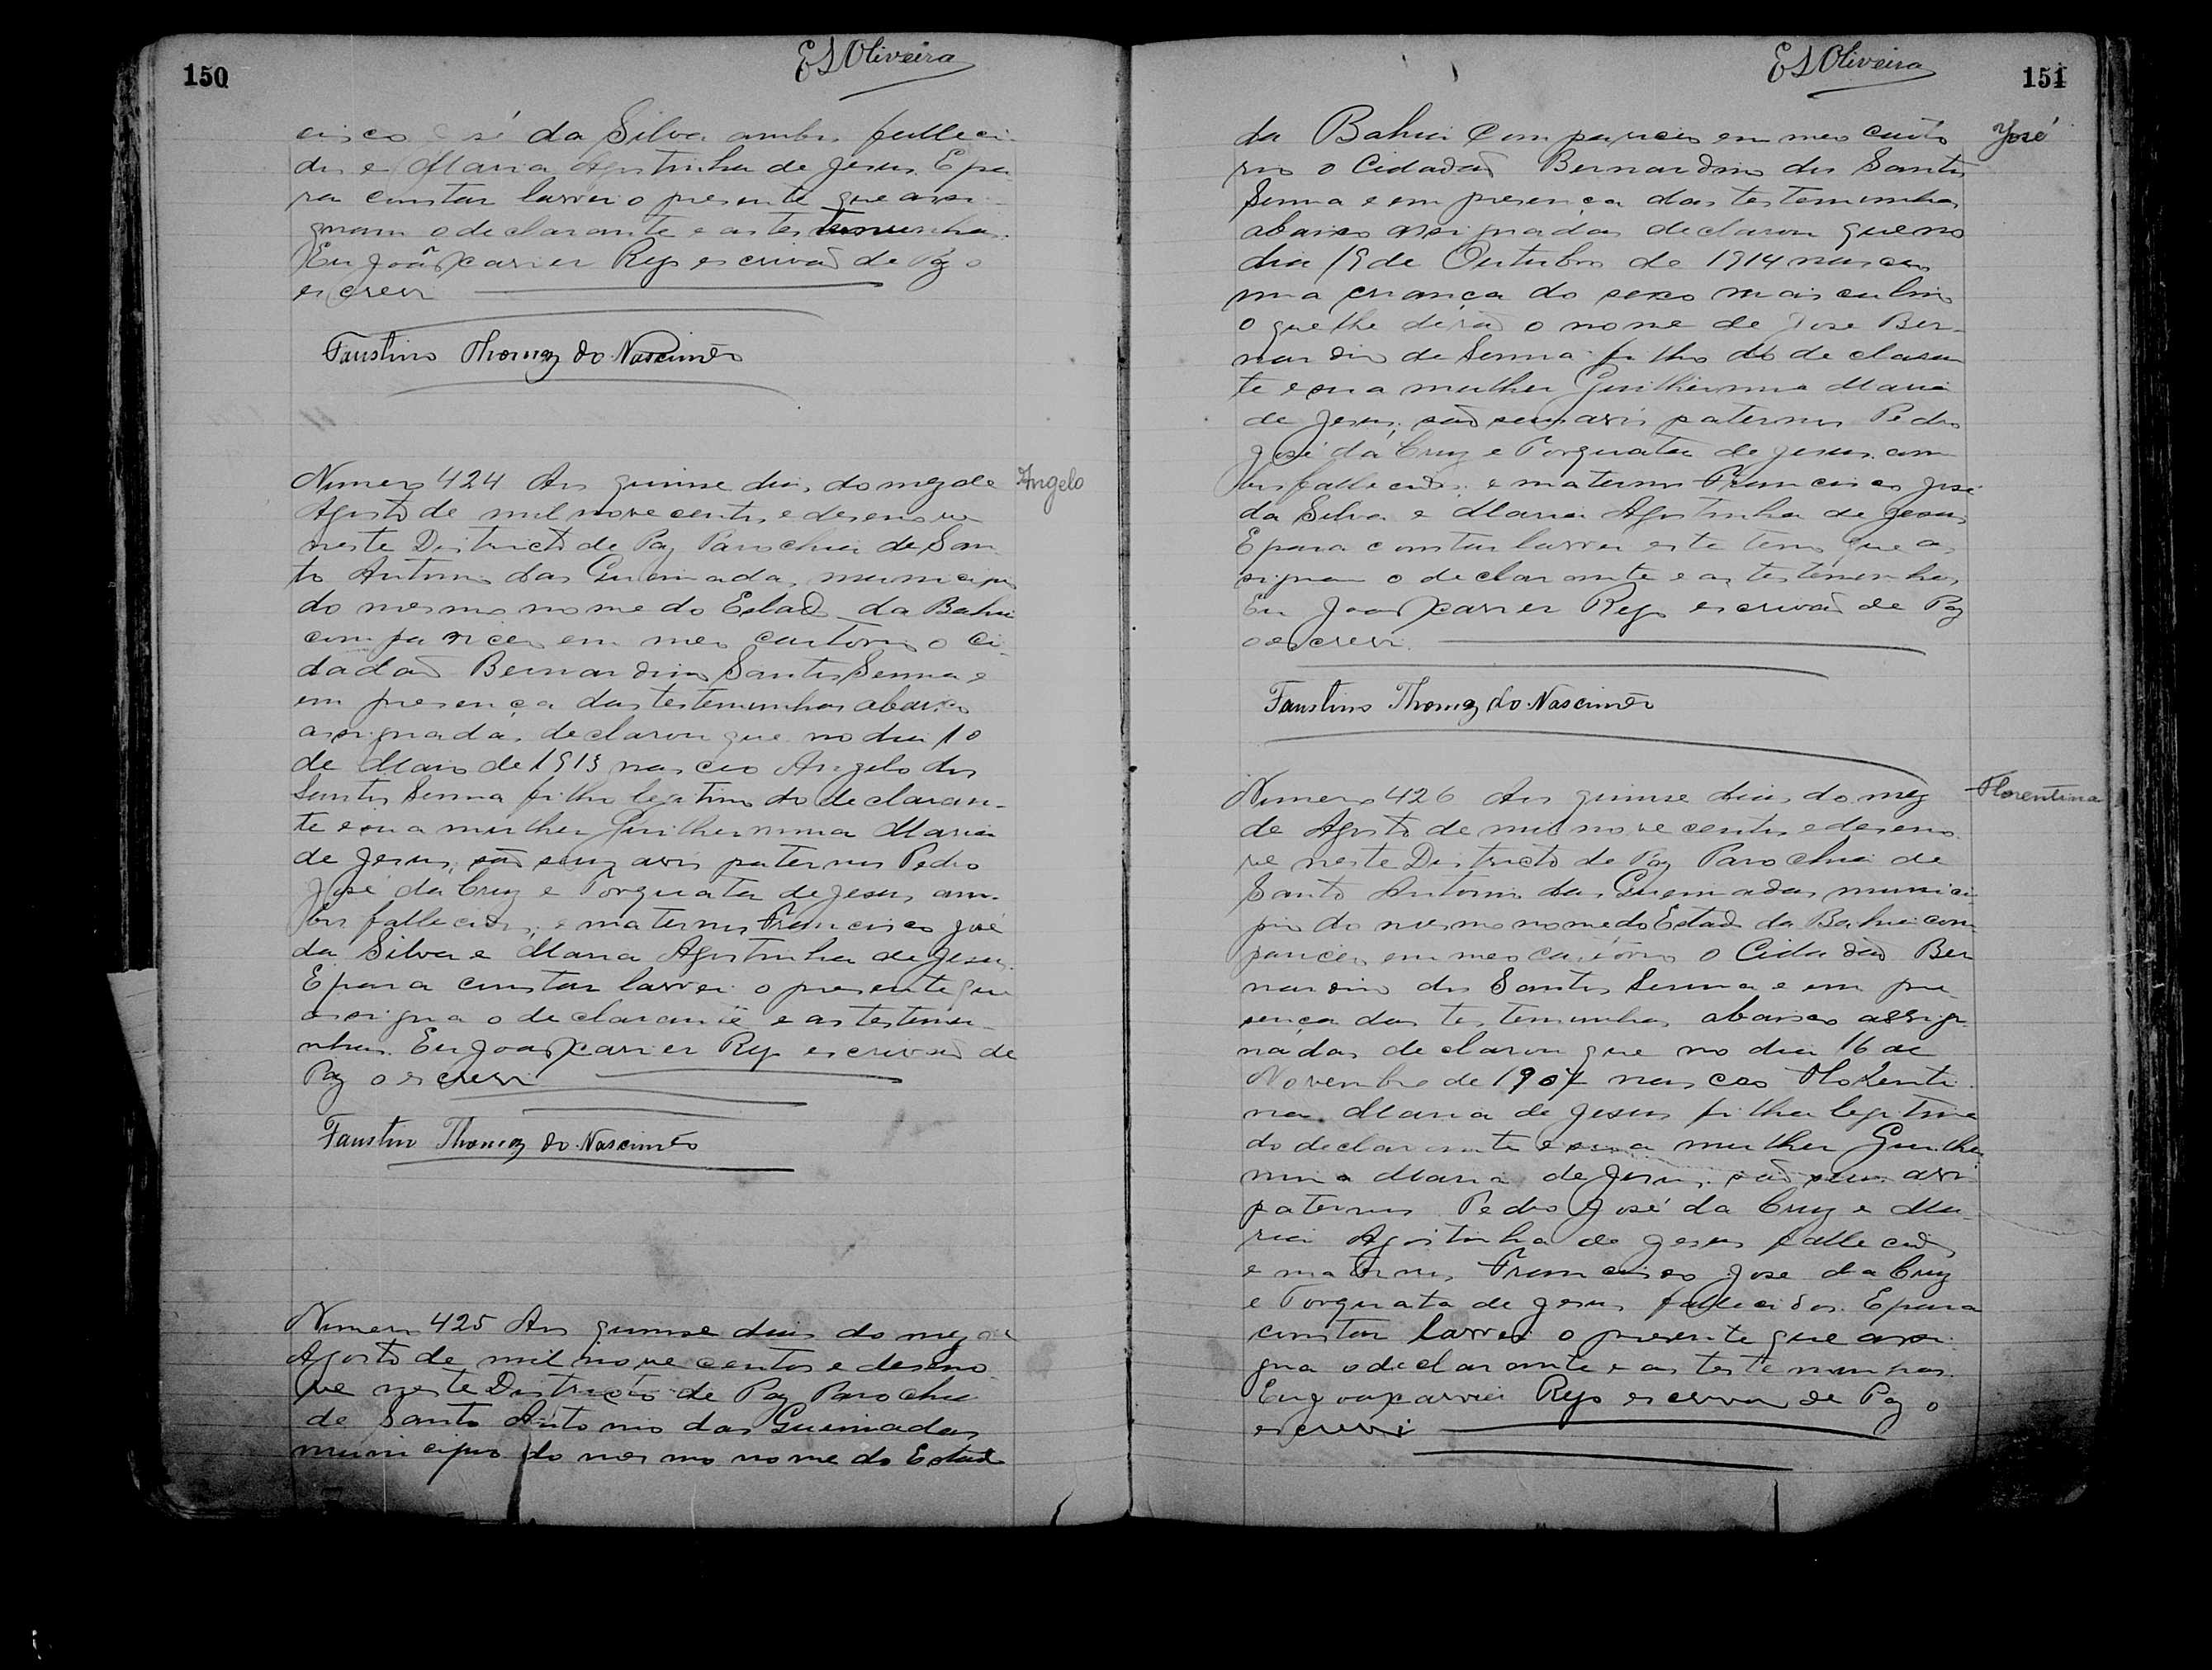 150
E S Oliveira
cisco José da Silva ambos falleci-
dos e Maria Agostinha de Jesus. E pa-
ra constar lavrei o presente que assi-
gnam o declarante e as testemunhas.
Eu João Xavier Reys escrivaõ de Paz o
escrevi
Faustino Thomaz do Nascimto
Angelo
Numero 424 Aos quinse dias do mez de
Agosto de mil nove centos e desenove
neste Districto de Paz Parochia de San
to Antonio das Queimadas, municipio
do mesmo nome do Estado da Bahia
compareceu em meu cartorio o Ci-
dadaõ Bernardino Santos Senna e
em presença das testemunhas abaixo
assignadas, declarou que no dia 10
de Maio de 1913 nasceo Angelo dos
Santos Senna filho legitimo do declaran-
te e sua mulher Guilhermina Maria
de Jesus, saõ seus avós paternos Pedro
José da Cruz e Torquata de Jesus, am-
bos fallecidos, e maternos Francisco José
da Silva e Maria Agostinha de Jesus.
E para constar lavrei o presente que
assigna o declarante e as testemu-
nhas. Eu João Xavier Reys escrivaõ de
Paz o escrevi
Faustino Thomaz do Nascimto
Numero 425 Aos quinse dias do mez de
Agosto de mil nove centos e deseno-
ve neste Districto de Paz Parochia
de Santo Antonio das Queimadas
municipio do mesmo nome do Estado
E S Oliveira
151
José
da Bahia Compareceu em meu carto
rio o Cidadaõ Bernardino dos Santos
Senna e em presença das testemunhas
abaixo assignadas declarou que no
dia 19 de Outubro de 1914 nasceu
uma criança do sexo masculino
o que lhe deraõ o nome de José Ber-
nardino de Senna filho do declaran
te e sua mulher Guilhermina Maria
de Jesus, saõ seus avós paternos Pedro
José da Cruz e Torquata de Jesus, am
bos fallecidos, e maternos Francisco José
da Silva e Maria Agostinha de Jesus,
E para constar lavrei este termo que as
signam o declarante e as testemunhas,
Eu João Xavier Reys escrivaõ de Paz
o escrevi.
Faustino Thomaz do Nascimto
Florentina
Numero 426 Aos quinse dias do mez
de Agosto de mil nove centos e deseno
ve neste Districto de Paz Parochia de
Santo Antonio das Queimadas munici-
pio do mesmo nome do Estado da Bahia com
pareceu em meu cartorio o Cidadaõ Ber
nardino dos Santos Senna e em pre-
sença das testemunhas abaixo assig
nadas, declarou que no dia 16 de
Novembro de 1907 nasceo Florenti
na Maria de Jesus filha legitima
do declarante e sua mulher Guilher
mina Maria de Jesus, saõ seus avós
paternos Pedro José da Cruz e Ma-
ria Agostinha de Jesus fallecidos
e maternos, Francisco José da Cruz
e Torquata de Jesus, fallecidos. E para
constar lavrei o presente que assi-
gna o declarante e as testemunhas.
Eu João Xavier Reys escrivaõ de Paz o
escrevi